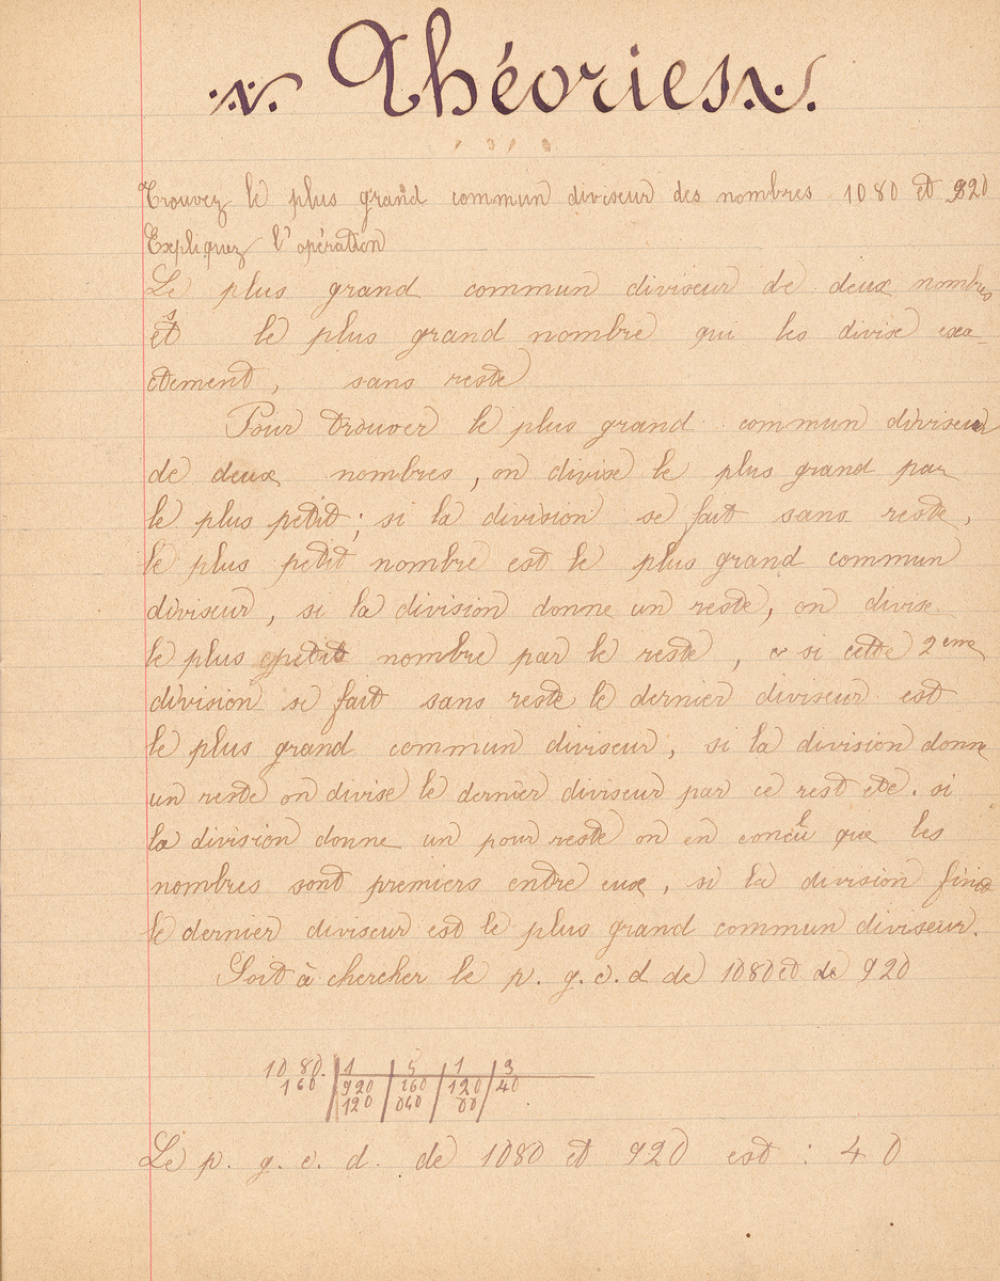 Théories
Trouvez le plus grand commun diviseur des nombres 1080 et 920
Expliquez l'opération
Le plus grand commun diviseur de deux nombres
est le plus grand nombre qui les divise exa-
ctement, sans reste
Pour trouver le plus grand commun diviseur
de deux nombres, on divise le plus grand par
le plus petit; si la division se fait sans reste,
le plus petit nombre est le plus grand commun
diviseur, si la division donne un reste, on divise
le plus petit nombre par le reste, si cette 2eme
division se fait sans reste le dernier diviseur est
le plus grand commun diviseur, si la division donne
un reste on divise le dernier diviseur par ce rest etc. si
la division donne un pour reste on en conclu que les
nombres sont premiers entre eux, si la division finit
le dernier diviseur est le plus grand commun diviseur.
Soit à chercher le p. g. c. d de 1080 et de 920
1080. 1 5 1 3
160 920 160 120 40
120 040 00
Le p. g. c. d. de 1080 et 920 est : 40